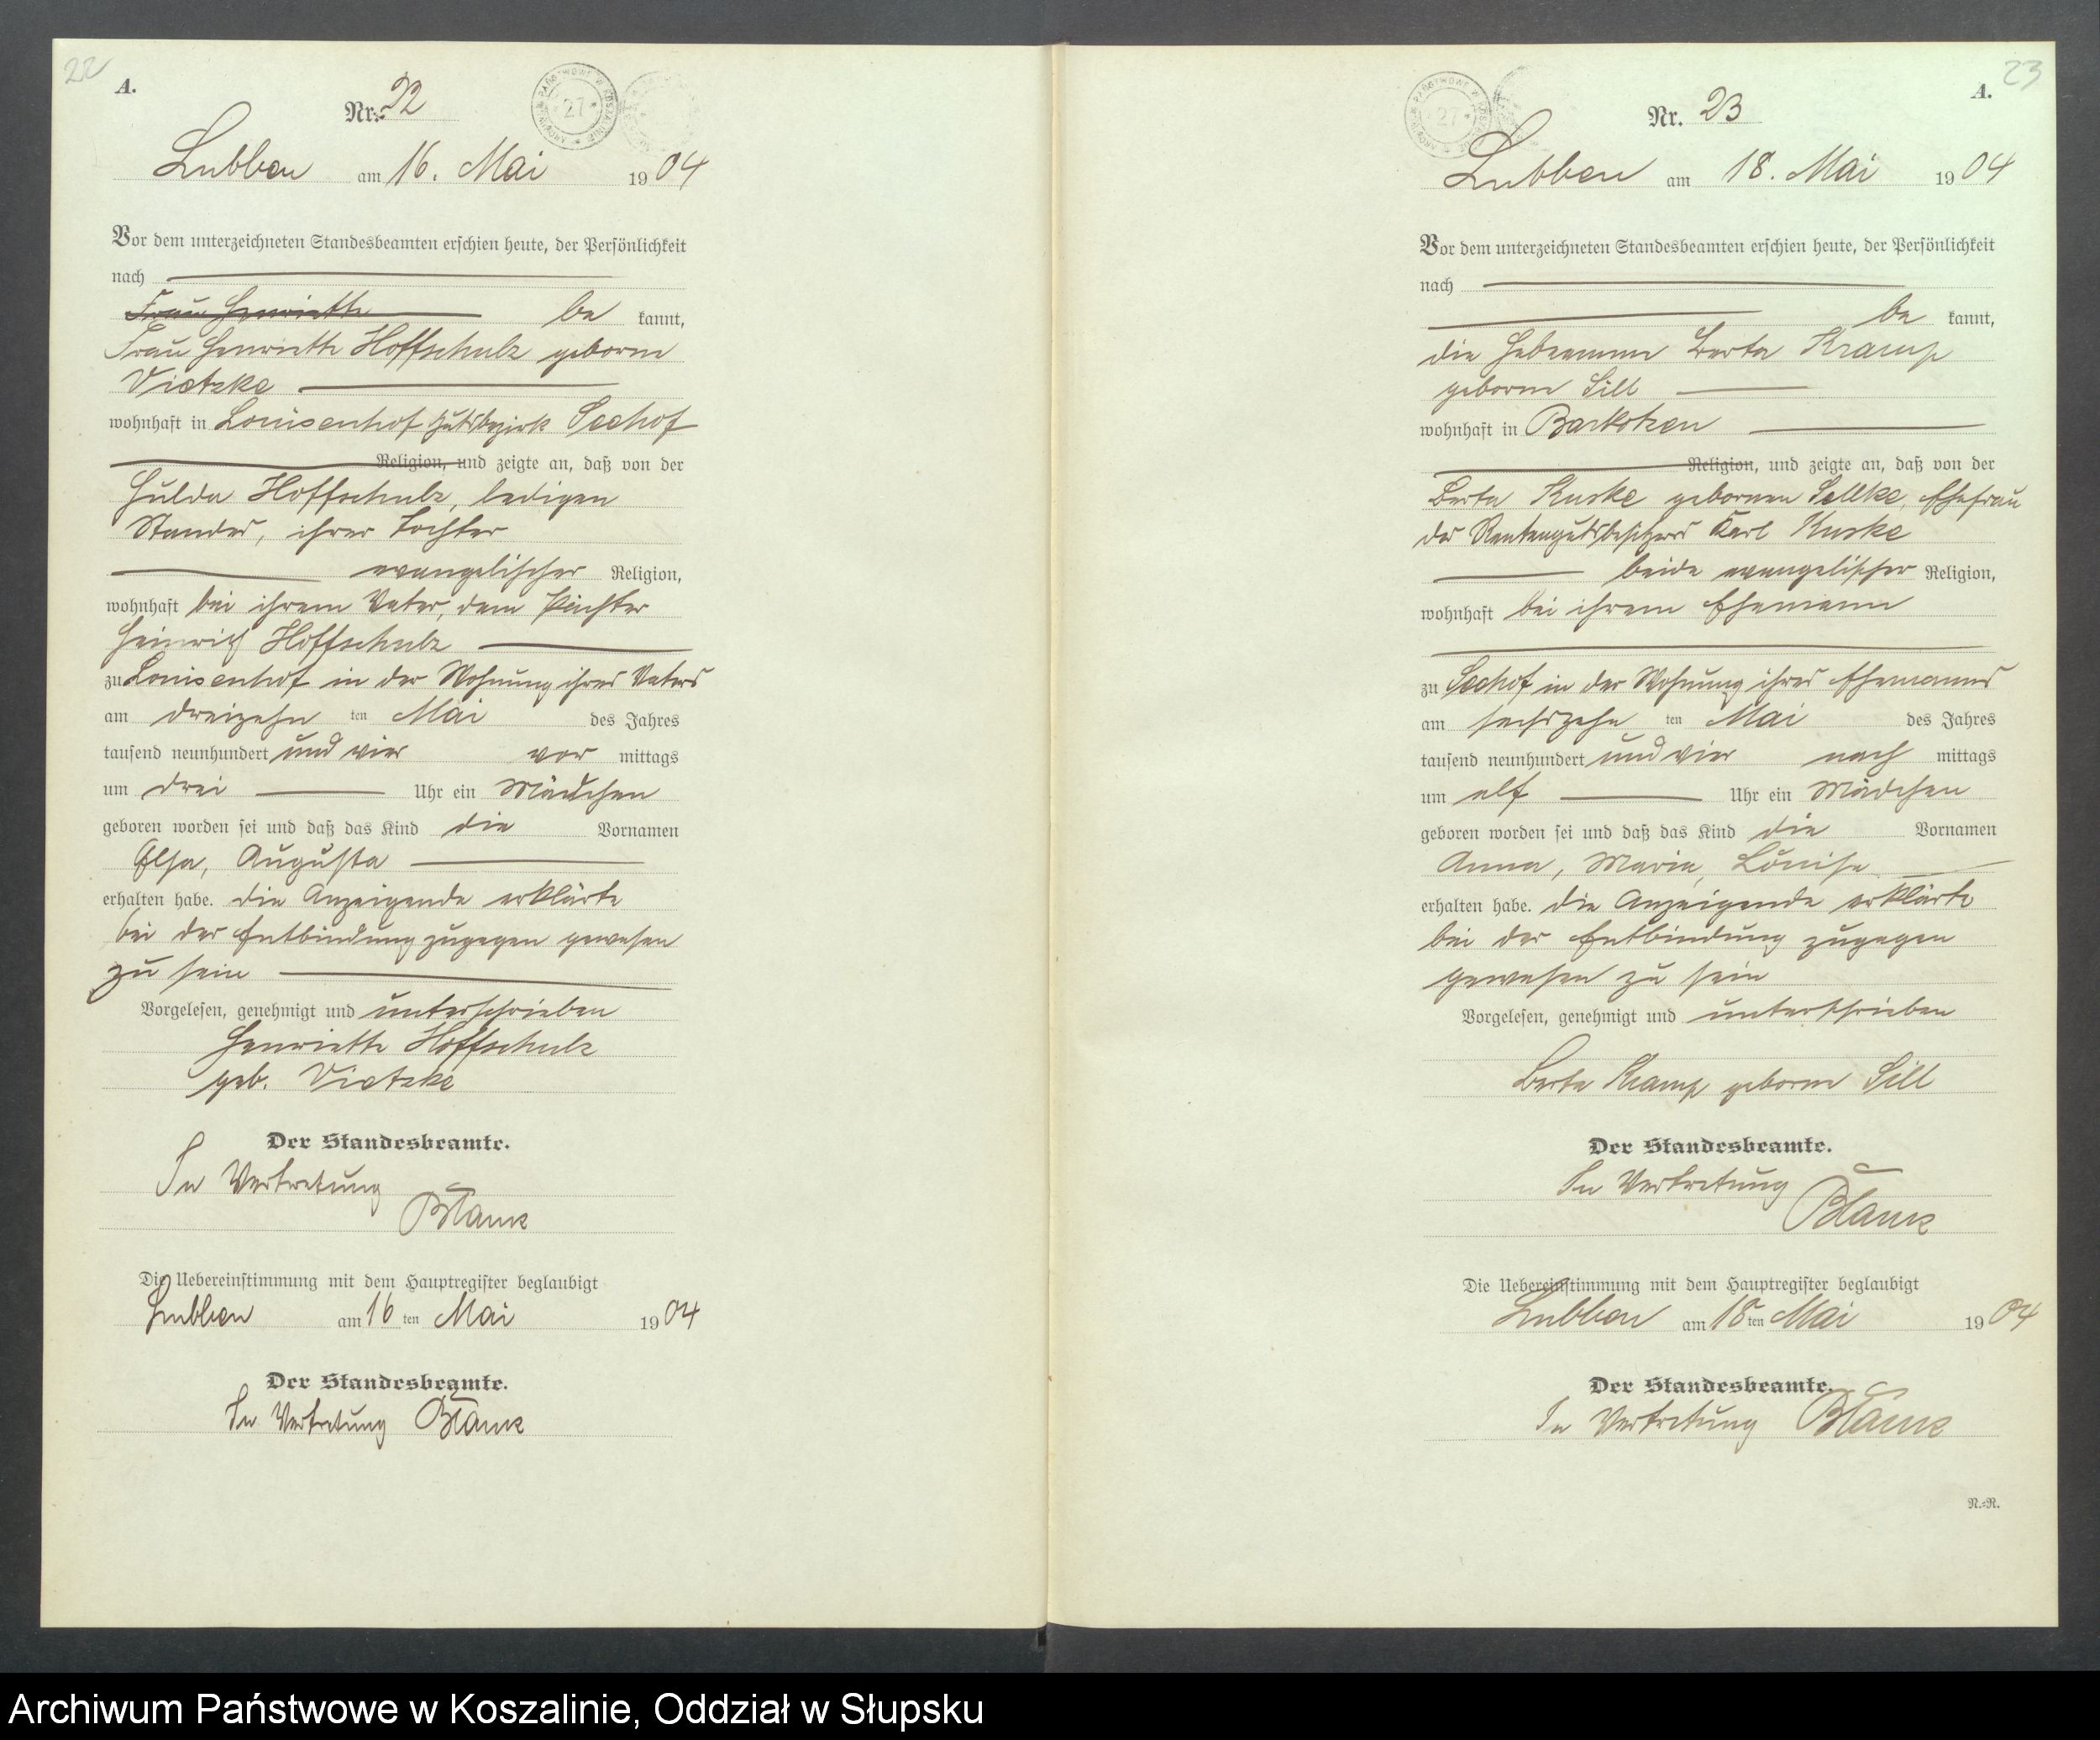 22
A.
Nr. 22
Lubben am 16. Mai 1904
Vor dem unterzeichneten Standesbeamten erschien heute, der Persönlichkeit
nach
Frau Henriette be kannt,
Frau Henriette Hoffschulz geborne
Vietzke
wohnhaft in Louisenhof Gutsbezirk Seehof
Religion, und zeigte an, daß von der
Hulda Hoffschulz, ledigen
Standes, ihrer Tochter
evangelischer Religion,
wohnhaft bei ihrem Vater, dem Pächter
Heinrich Hoffschulz
zu Louisenhof in der Wohnung ihres Vaters
am dreizehn ten Mai des Jahres
tausend neunhundert und vier vor mittags
um drei Uhr ein Mädchen
geboren worden sei und daß das Kind die Vornamen
Elsa, Augusta
erhalten habe. Die Anzeigende erklärte
bei der Entbindung zugegen gewesen
zu sein
Vorgelesen, genehmigt und unterschrieben
Henriette Hoffschulz
geb. Vietzke
Der Standesbeamte.
In Vertretung
Blank
Die Uebereinstimmung mit dem Hauptregister beglaubigt
Lubben am 16 ten Mai 1904
Der Standesbeamte.
In Vertretung Blank
23
A.
Nr. 23
Lubben am 18. Mai 1904
Vor dem unterzeichneten Standesbeamten erschien heute, der Persönlichkeit
nach
be kannt,
die Hebeamme Berta Kramp
geborne Sill
wohnhaft in Bartkotzen
Religion, und zeigte an, daß von der
Berta Kuske gebornen Sellke, Ehefrau
des Rentengutsbesitzers Karl Kuske
beide evangelischer Religion,
wohnhaft bei ihrem Ehemann
zu Seehof in der Wohnung ihres Ehemannes
am sechszehn ten Mai des Jahres
tausend neunhundert und vier nach mittags
um elf Uhr ein Mädchen
geboren worden sei und daß das Kind die Vornamen
Anna, Maria, Louise
erhalten habe. Die Anzeigende erklärte
bei der Entbindung zugegen
gewesen zu sein
Vorgelesen, genehmigt und unterschrieben
Berta Kramp geborne Sill
Der Standesbeamte.
In Vertretung
Blank
Die Uebereinstimmung mit dem Hauptregister beglaubigt
Lubben am 18 ten Mai 1904
Der Standesbeamte.
In Vertretung Blank
N.=R.
Archiwum Państwowe w Koszalinie, Oddział w Słupsku